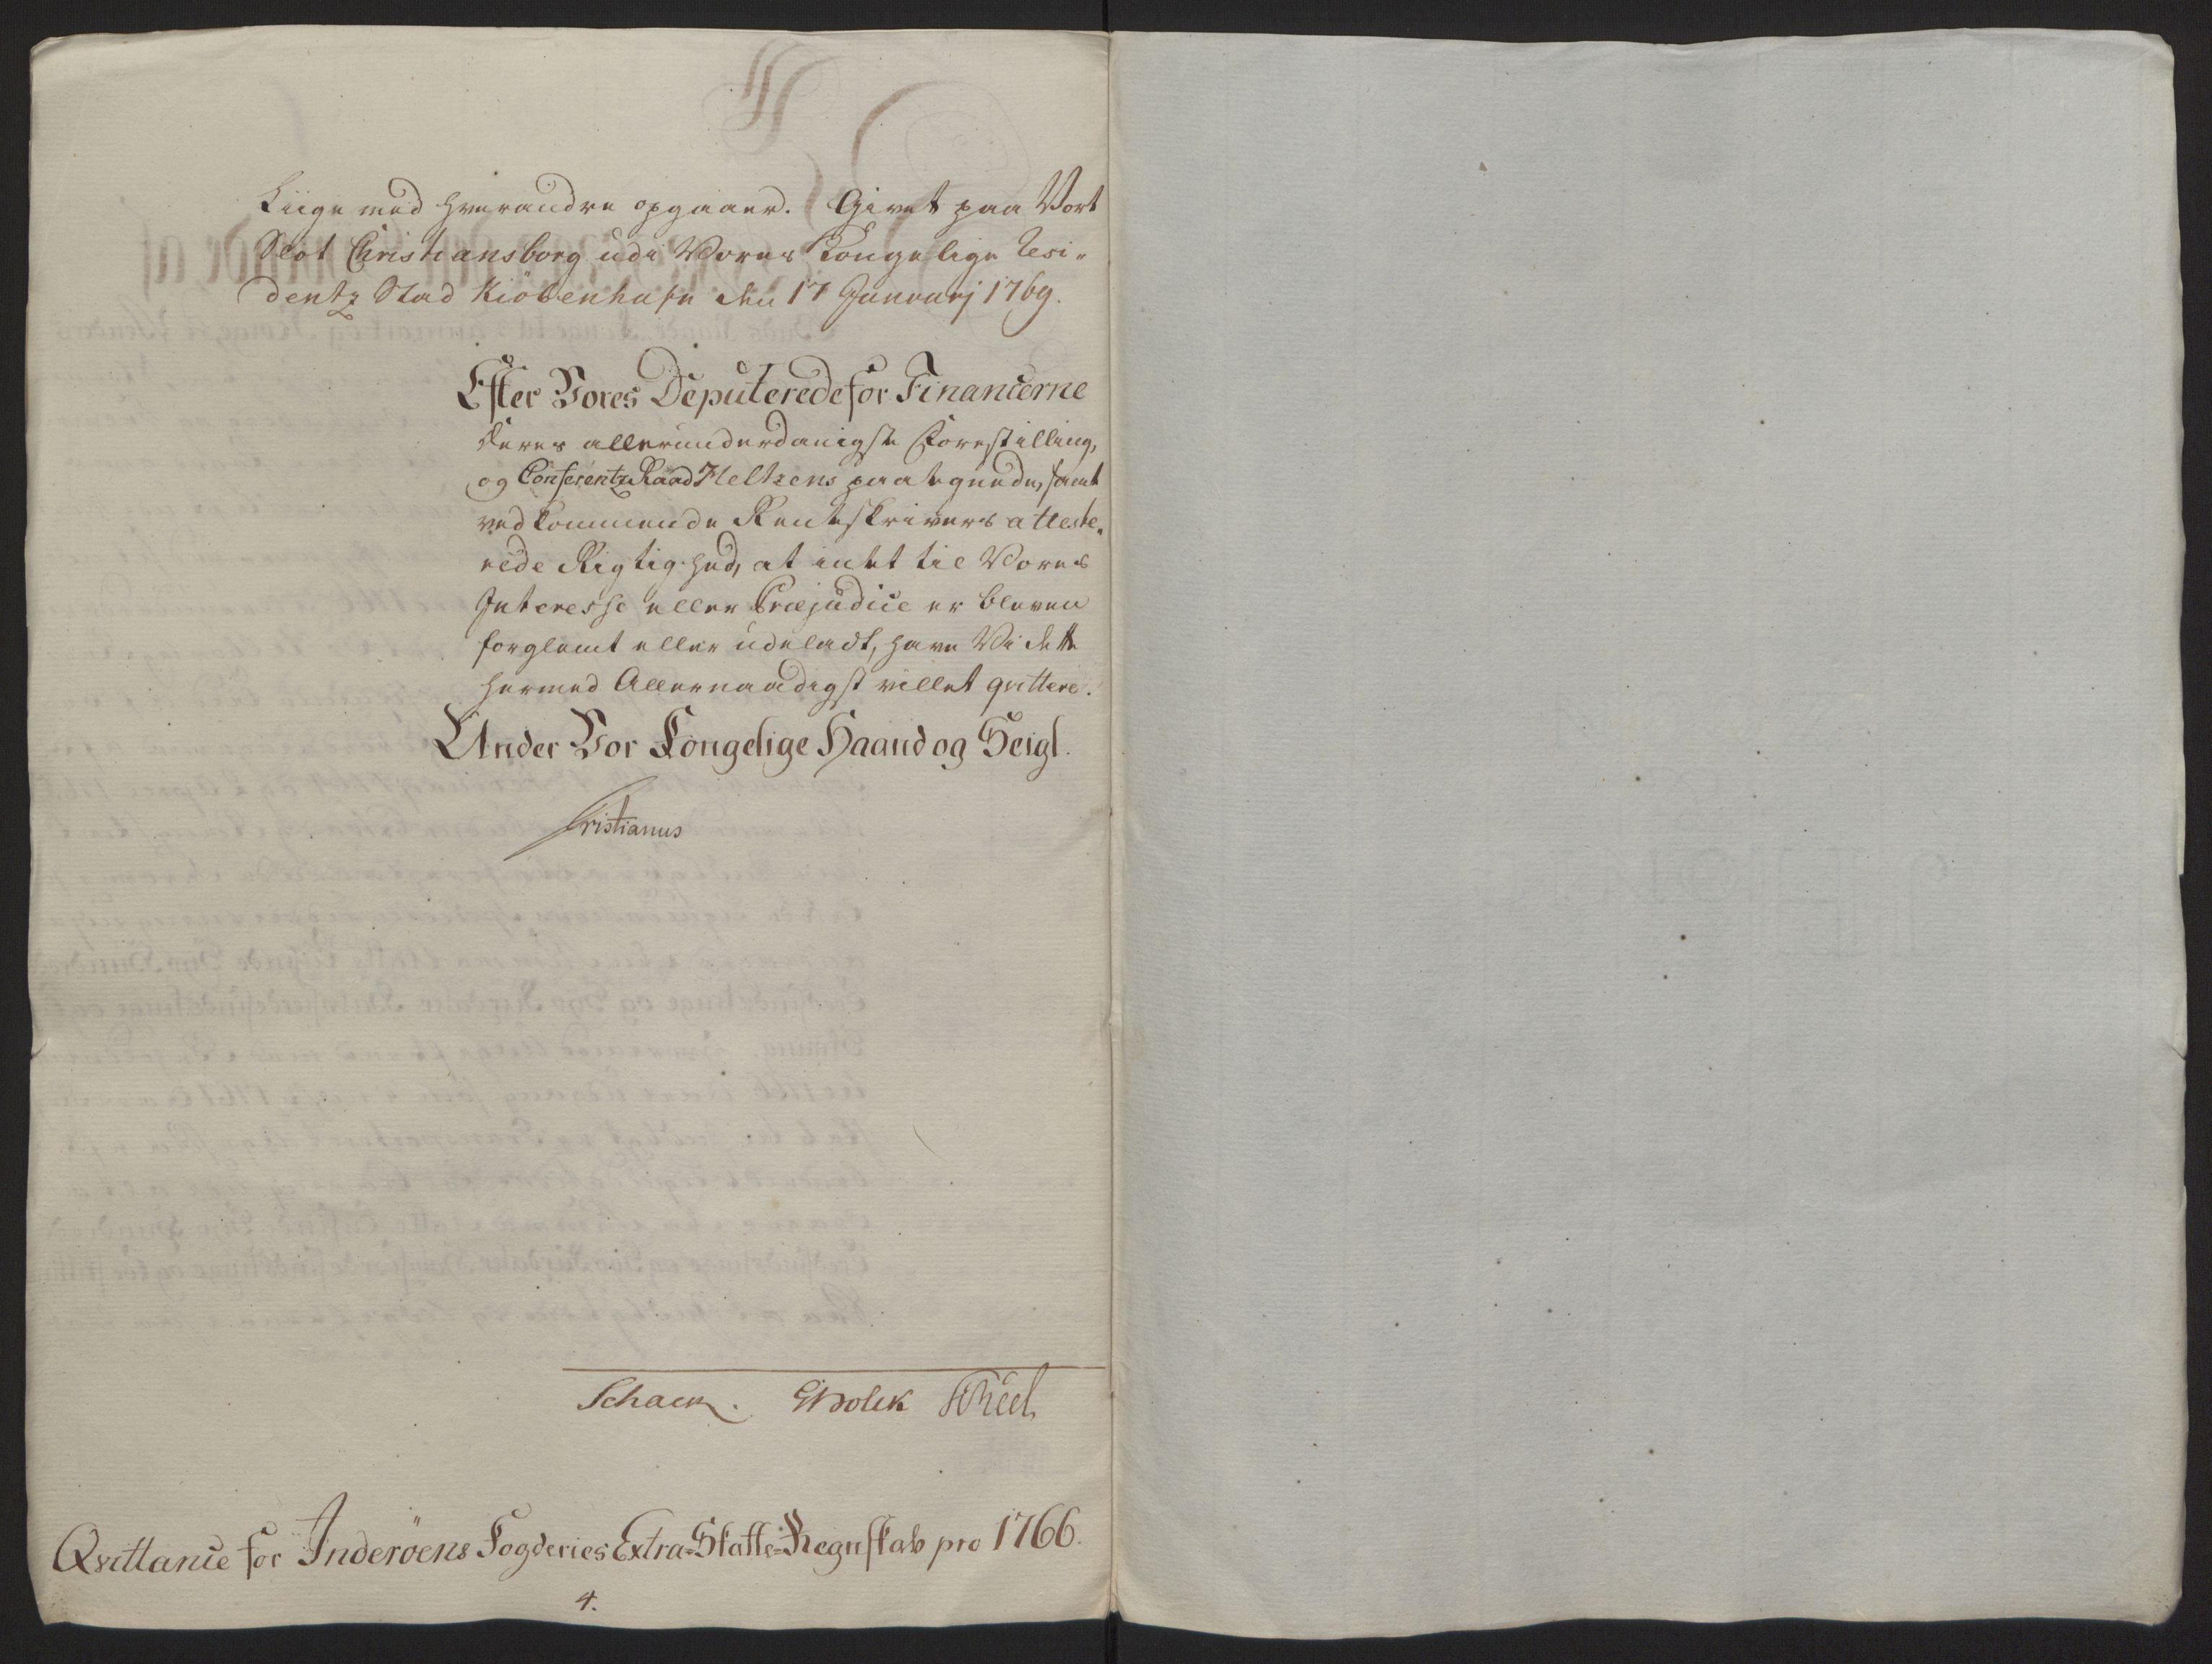 Liige med hverandre opgaaer. Givet paa Vort
Slot Christiansborg udi Vores Kongelige Resi„
dentz Stad Kiöbenhafn den 17 Januarj 1769.
Efter Vores Deputerede for Financerne
deres allerunderdanigste Forestilling,
og Conferentz Raad Heltzens paategnede, samt
vedkommende Rentskrivers atteste„
rede Rigtighed, at intet til Vores
Interesse eller Præjudice er bleven
forglemt eller udeladt, have Vi dette
hermed Allernaadigst villet qvittere.
Under Vor Kongelige Haand og Seigl.
Cristianus
Schack. GHolck Scheel
Qvittance for Inderöens Fogderies Extra-Skatte-Regnskab pro 1766.
4.